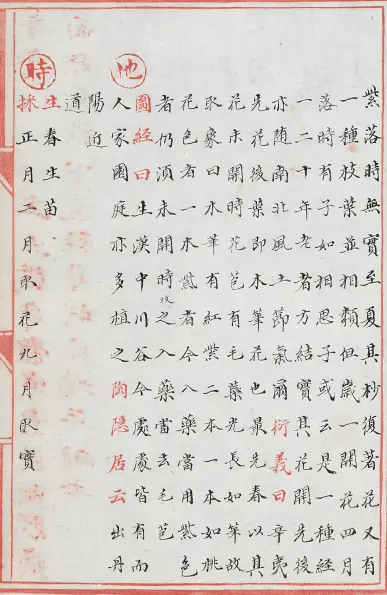 紫落時無實至夏其杪復著花又有
一種枝葉並相類但歲一開花四月
落時有子如相思子或云是一種經
一二十年老者方結實其花開先後
亦随南北風土節氣爾衍義曰辛夷
先花後葉即木筆花也最先春以其
花未開時花苞有毛葉光長如筆故
取象曰木筆有紅紫二本一本如桃
花色者一本紫者今入藥當用紫色
者仍須未開時收之入藥當去毛苞
地
圖經曰生漢中川谷今處處皆有而
人家園庭亦多植之陶隐居云出丹
陽近
道
時
生春生苗
採正月二月取花九月取實